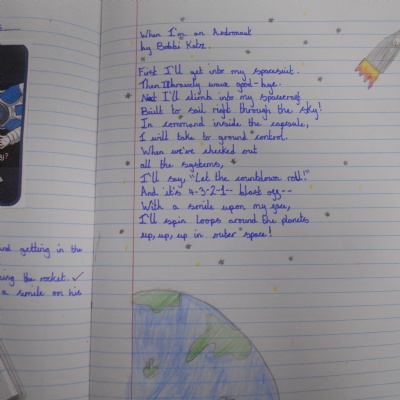 When I'm an Astronaut
by Bobbi Katz.
First I'll get into my spacesuit.
Then I'll bravely wave good-bye.
Next I'll climb into my spacecraft
Built to sail right through the sky!
In command inside the capsule,
I will talk to ground control.
When we've checked out
all the systems,
I'll say, "Let the countdown roll!"
And it's 4-3-2-1-- blast off--
With a smile upon my face,
I'll spin loops around the planets
up, up, up in outer space!
and getting in the
ing the rocket.
a smile on his